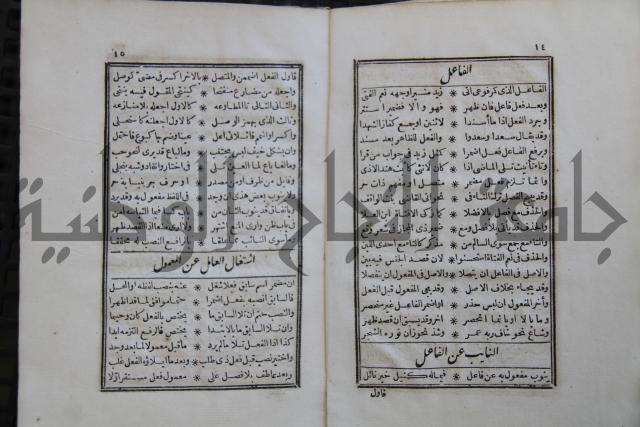 ١٤
الفاعل
الفاعل الذي كمرفوعي اتى * زيد منيرا وجهه نعم الفتى
وبعد فعل فاعل فان ظهر * فهو والا فضمير استتر
وجرد الفعل اذا ما أسندا * لاثنين اوجمع كفاز الشهدا
وقد يقال سعدا وسعدوا * والفعل للظاهر بعد مسند
ويرفع الفاعل فعل اضمرا * كمثل زيد في جواب من قرا
وتاء تأنيث تلي الماضي اذا * كان لانثى كأبت هند الاذى
وانما تلزم فعل مضمر * متصل او مفهم ذات حر
وقد يبيح الفصل ترك التاء في * نحو اتى القاضي بنت الواقف
والحذف مع فصل بالا فضلا * كما زكى الا
والحذف قد يأتي بلا فصل ومع * ضمير ذي المجاز في شعر وقع
والتاء مع جمع سوى السالم من * مذكر كالتاء مع احدى اللبن
والحذف في نعم الفتاة استحسنوا * لان قصد الجنس فيه بين
والاصل في الفاعل ان يتصلا * والاصل في المفعول ان ينفصلا
وقد يجاء بخلاف الاصل * وقد يجي المفعول قبل الفعل
وأخر المفعول ان لبس حذر * او اضمر الفاعل غير منحصر
وما بالا او بانما انحصر * أخر وقد يسبق ان قصد ظهر
وشاع نحو خاف ربه عمر * وشذ نحو زان نوره الشجر
النايب عن الفاعل
ينوب مفعول به عن فاعل * فيما له كنيل خير نائل
فاول
١٥
فاول الفعل اضممن والمتصل * بالآخر اكسر في مضي كوصل
واجعله من مضارع منفتحا * كينتحي المقول فيه ينتحى
والثاني التالي تا المطاوعه * كالاول اجعله بلا منازعه
وثالث الذي بهمز الوصل * كالاول اجعلنه كاستحلي
واكسر او اشمم فا ثلاثي اعل * عينا وضم جا كبوع فاحتمل
وان بشكل خيف لبس يجتنب * وما لباع قد يرى لنحو حب
وما لفا باع لما العين تلي * في اختار وانقاد وشبه ينجلي
وقابل من ظرف او من مصدر * او حرف جر بنيابة حر
ولا ينوب بعض هذي ان وجد * في اللفظ مفعول به وقد يرد
اشتغال العامل عن المعمول
ان مضمر اسم سابق فعلا شغل * عنه بنصب لفظه او المحل
فالسابق انصبه بفعل اضمرا * حتما موافق لما قد اظهرا
والنصب حتم ان تلا السابق ما * يختص بالفعل كان وحيثما
وان تلا السابق ما بالابتدا * يختص فالرفع التزمه ابدا
كذا اذا الفعل تلا ما لم يرد * ما قبل معمولا لما بعد وجد
واختير نصب قبل فعل ذي طلب * وبعد ما ايلاؤه الفعل غلب
وبعد عاطف بلا فصل على * معمول فعل مستقر اولا
جامعة النجاح الوطنية